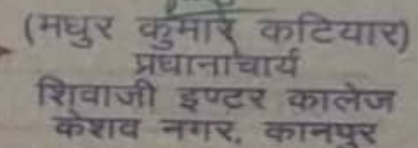 (मधुर कुमार कटियार)
प्रधानाचार्य
शिवाजी इण्टर कालेज
केशव नगर, कानपुर